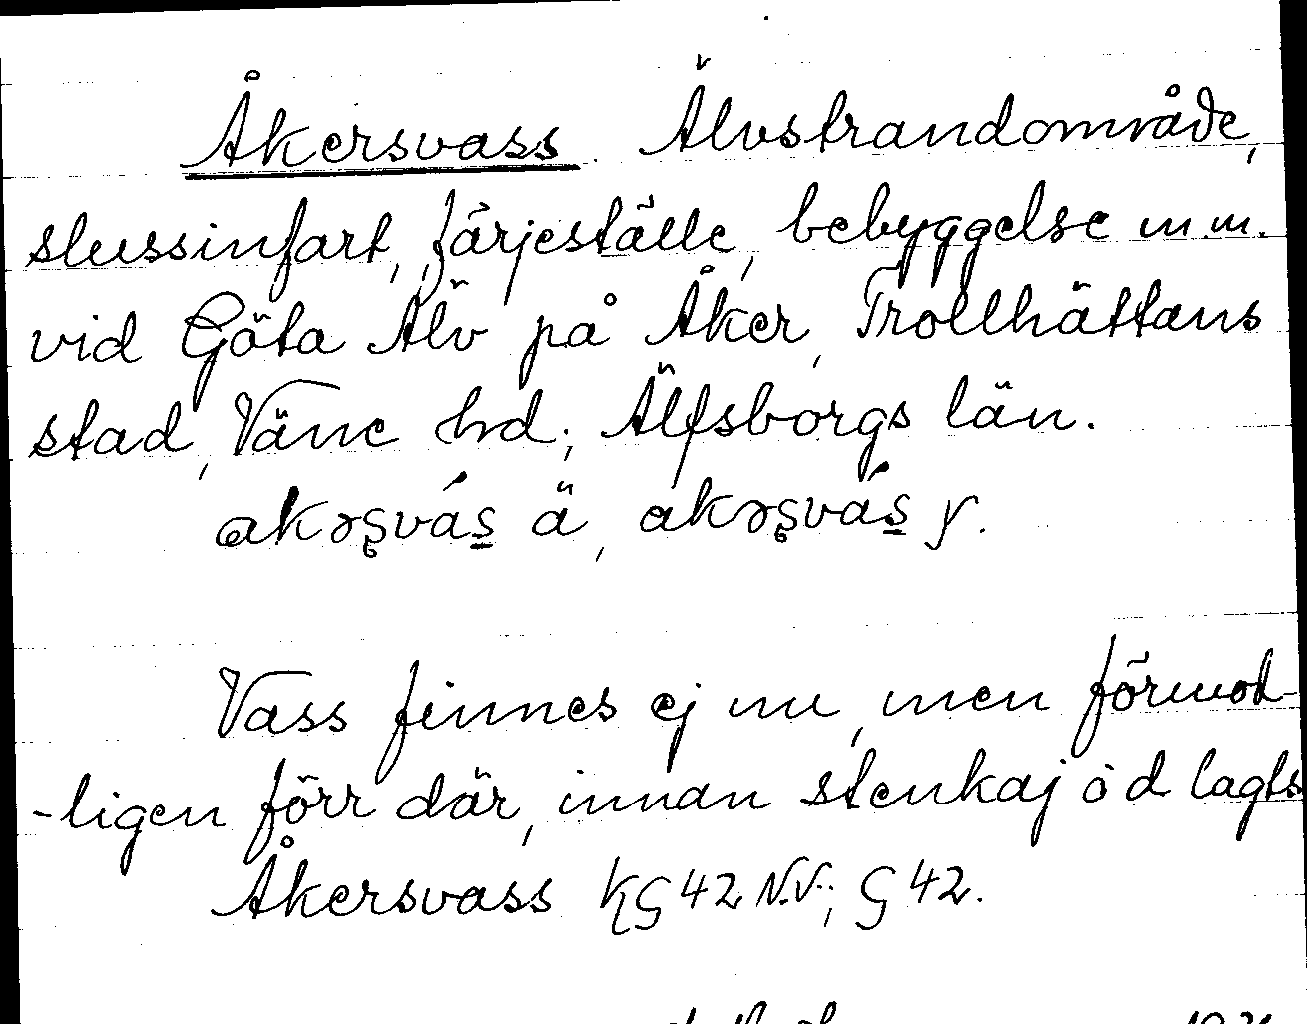 Åkersvass Älvstrandområde,
slussinfart, färjeställe, bebyggelse m.m.
vid Göta Älv på Åker, Trollhättans
stad, Väne hd; Älfsborgs län.
akərsvás ä, akərsvás y.
Vass finnes ej nu, men förmod-
-ligen förr där, innan stenkaj o d lagts
Åkersvass KG 42 N.V.; G 42.